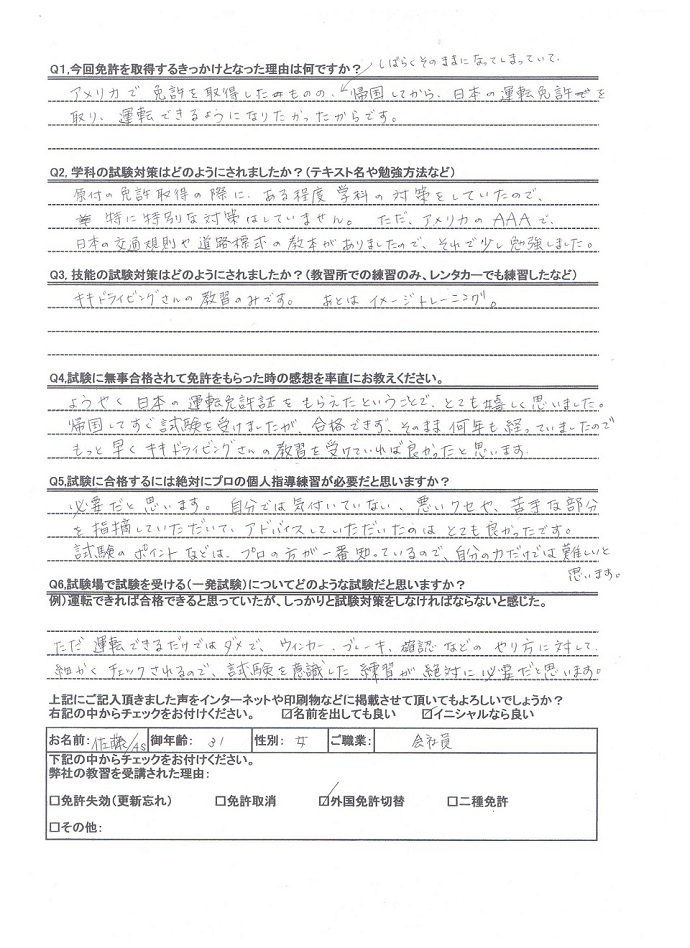 Q1,今回免許を取得するきっかけとなった理由は何ですか?
しばらくそのままになってしまっていて、
アメリカで免許を取得したものの、帰国してから、日本の運転免許を
取り、運転できるようになりたかったからです。
Q2, 学科の試験対策はどのようにされましたか?(テキスト名や勉強方法など)
原付の免許取得の際に、ある程度学科の対策をしていたので、
特に特別な対策はしていません。 ただ、アメリカのAAAで、
日本の交通規則や道路標示の教本がありましたので、それで少し勉強しました。
Q3, 技能の試験対策はどのようにされましたか?(教習所での練習のみ、レンタカーでも練習したなど)
キキドライビングさんの教習のみです。 あとはイメージトレーニング。
Q4,試験に無事合格されて免許をもらった時の感想を率直にお教えください。
ようやく日本の運転免許証をもらえたということで、とても嬉しく思いました。
帰国してすぐ試験を受けましたが、合格できず、そのまま何年も経っていましたので
もっと早くキキドライビングさんの教習を受けていれば良かったと思います
Q5,試験に合格するには絶対にプロの個人指導練習が必要だと思いますか?
必要だと思います。 自分では気付いていない、悪いクセや、苦手な部分
を指摘していただいて、アドバイスしていただいたのはとても良かったです。
試験のポイントなどは、プロの方が一番知っているので、自分の力だけでは難しいと
思います。
Q6,試験場で試験を受ける(一発試験)についてどのような試験だと思いますか?
例)運転できれば合格できると思っていたが、しっかりと試験対策をしなければならないと感じた。
ただ運転できるだけではダメで、ウィンカー、ブレーキ、確認などのやり方に対して、
細かくチェックされるので、試験を意識した練習が絶対に必要だと思います。
上記にご記入頂きました声をインターネットや印刷物などに掲載させて頂いてもよろしいでしょうか?
右記の中からチェックをお付けください。 ☑名前を出しても良い ☑イニシャルなら良い
お名前: 佐藤/AS 御年齢: 31 性別: 女 ご職業: 会社員
下記の中からチェックをお付けください。
弊社の教習を受講された理由:
□免許失効(更新忘れ) □免許取消 ☑外国免許切替 □二種免許
□その他: